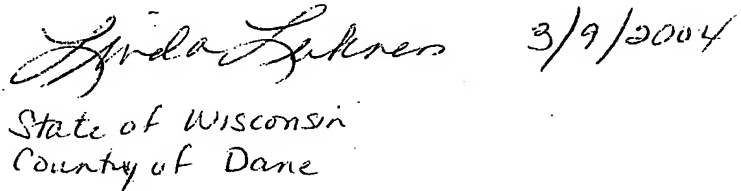 Linda 3/9/2004
State of Wisconsin
County of Dane